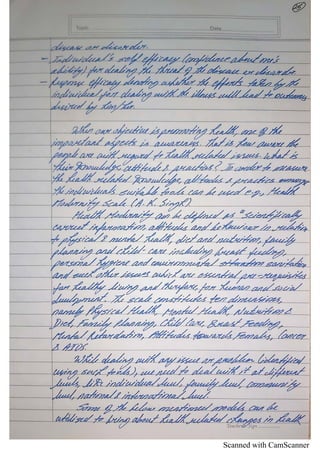 Topic
Date
disease or disorder.
- Individual's self efficacy (confidence about one's
ability) for dealing the threat of the disease or disorder.
- Response efficacy denoting whether the efforts taken by the
individual for dealing with the illness will lead to outcomes
desired by him/her.
When our objective is promoting health, one of the
important aspects is awareness. That is how aware the
people are with regard to health related issues. What is
their knowledge, attitude & practices? In order to measure
the health related knowledge, attitudes & practice among
the individuals suitable tools can be used e.g., Health
Modernity Scale (A. K. Singh)
Health Modernity can be defined as "scientifically
correct information, attitudes and behaviour in relation
to physical & mental health, diet and nutrition, family
planning and child care including breast feeding,
personal hygiene and environmental sanitation
and such other issues which are essential pre-requisites
for healthy living and therefore, for human and social
development. The scale constitutes ten dimensions,
namely Physical Health, Mental Health, Nutrition &
Diet, Family Planning, Child Care, Breast Feeding,
Mental Retardation, Attitudes towards Females, Cancer
& AIDS.
While dealing with any issue or problem (identified
using such tools), we need to deal with it at different
levels, like individual level, family level, community
level, national & international level.
Some of the below mentioned models can be
utilised to bring about health related changes in health
Teacher's Sign
Scanned with CamScanner